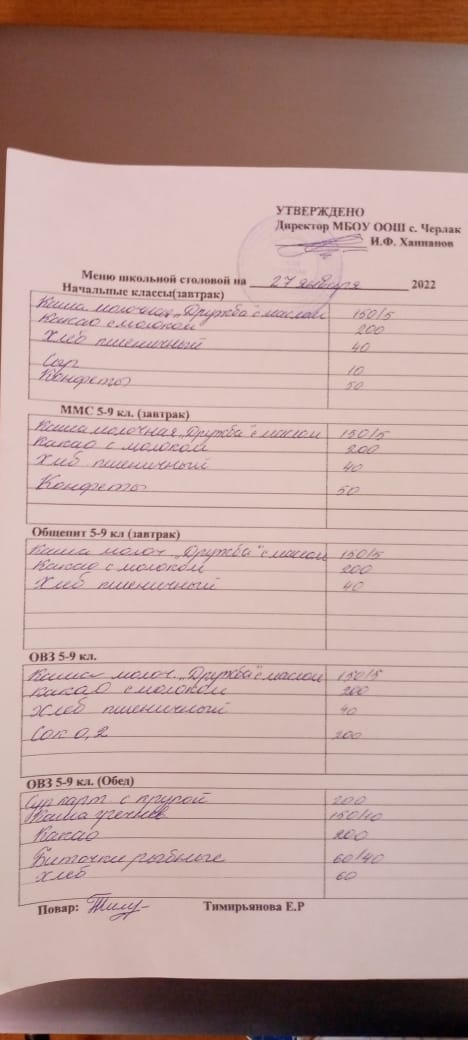 УТВЕРЖДЕНО
Директор МБОУ ООШ с. Черлак
И.Ф. Ханнанов
Меню школьной столовой на 27 января 2022
Начальные классы(завтрак)
Каша молочная „Дружба" с маслом 150/5
Какао с молоком 200
Хлеб пшеничный 40
Сыр 10
Конфеты 50
ММС 5-9 кл. (завтрак)
Каша молочная „Дружба" с маслом 150/5
Какао с молоком 200
Хлеб пшеничный 40
Конфеты 50
Общепит 5-9 кл (завтрак)
Каша молоч „Дружба" с маслом 150/5
Какао с молоком 200
Хлеб пшеничный 40
ОВЗ 5-9 кл.
Каша молоч. „Дружба" с маслом 150/5
Какао с молоком 200
Хлеб пшеничный 40
Сок 0,2 200
ОВЗ 5-9 кл. (Обед)
Суп карт с крупой 200
Каша гречнев 150/10
Какао 200
Биточки рыбные 60/40
Хлеб 60
Повар: Тимирьянова Е.Р